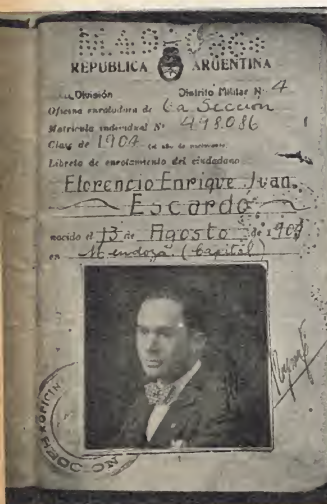 REPÚBLICA ARGENTINA
División Distrito Militar Nº 4
Oficina enroladora de 6a Sección
Matrícula individual Nº 498.086
Clase de 1904
Libreta de enrolamiento del ciudadano
Florencio Enrique Juan
Escardó
nacido el 13 de Agosto de 1904
en Mendoza (Capital)